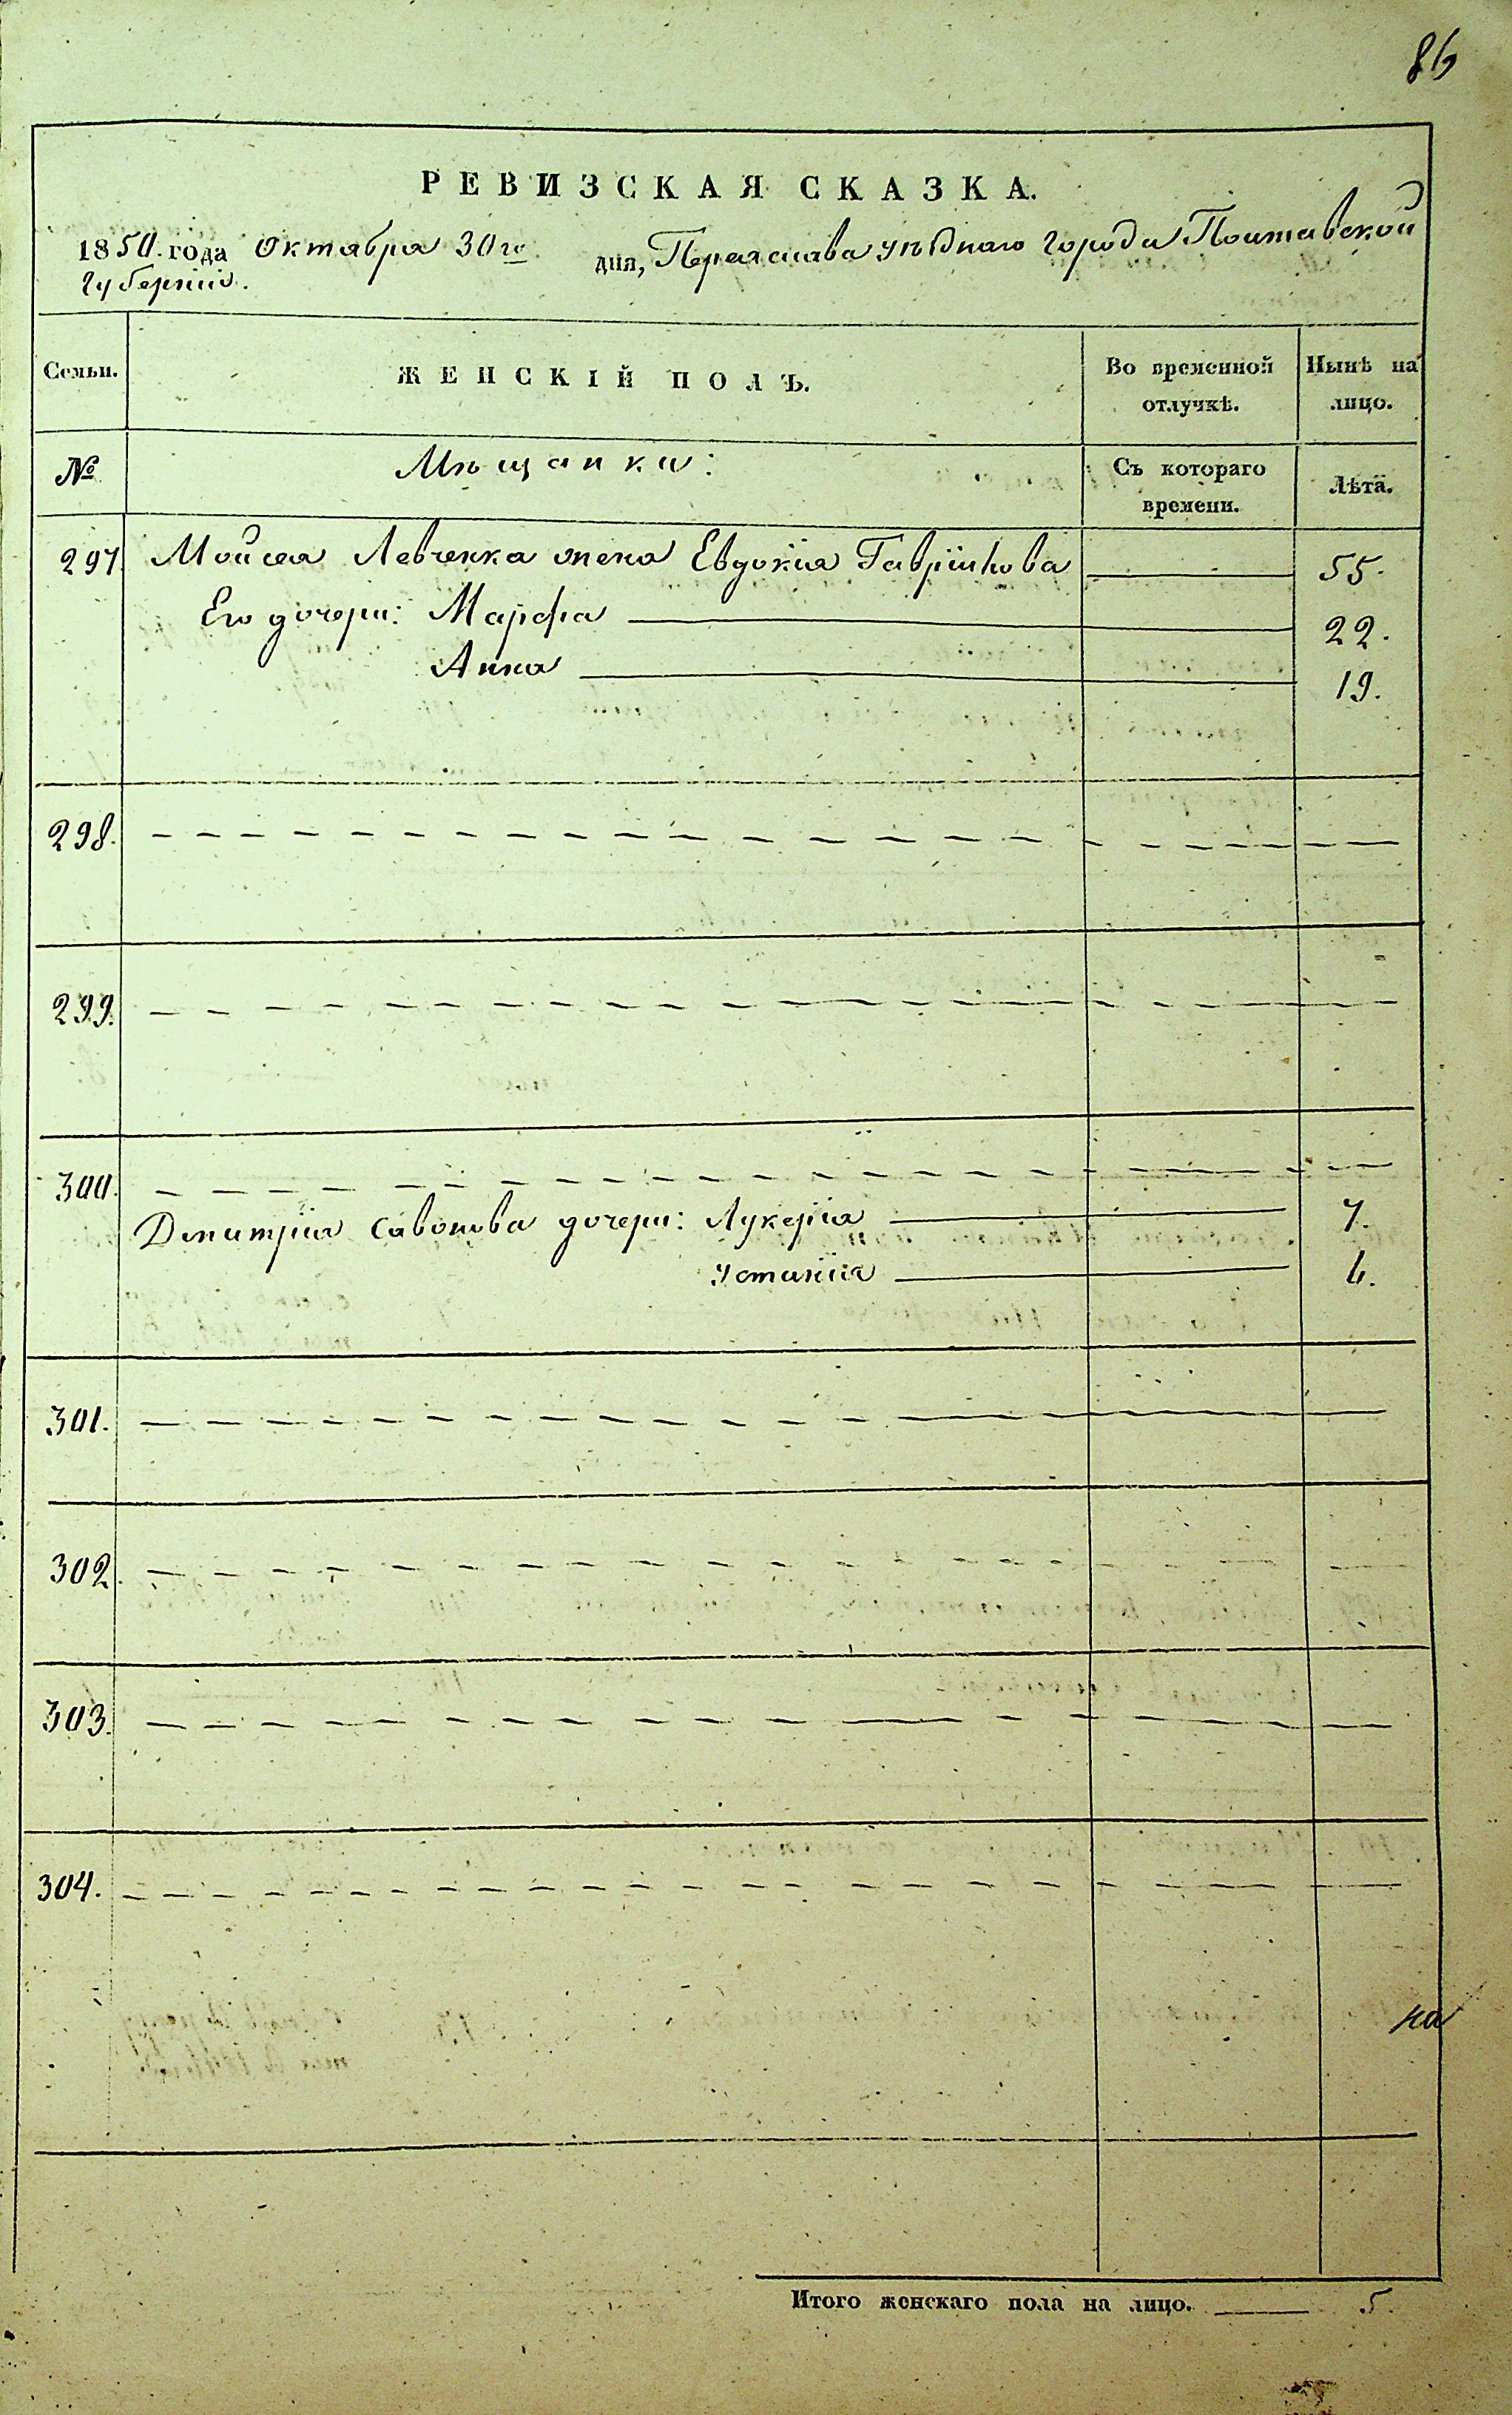 86
РЕВИЗСКАЯ СКАЗКА.
1850. года Октября 30го дня, Переяслава уѣзднаго города Полтавской
Губерніи.
Семьи. ЖЕНСКІЙ ПОЛЪ. Во временной отлучкѣ. Нынѣ на лицо.
№ Мѣщанки: Съ котораго времени. Лѣта.
297. Мойсея Левченка жена Евдокія Гаврилова 55.
Его дочери: Марфа 22.
Анна 19.
298.
299.
300.
Дмитрія Савонова дочери: Лукерія 7.
Устинія 6.
301.
302.
303.
304.
на
Итого женскаго пола на лицо. 5.